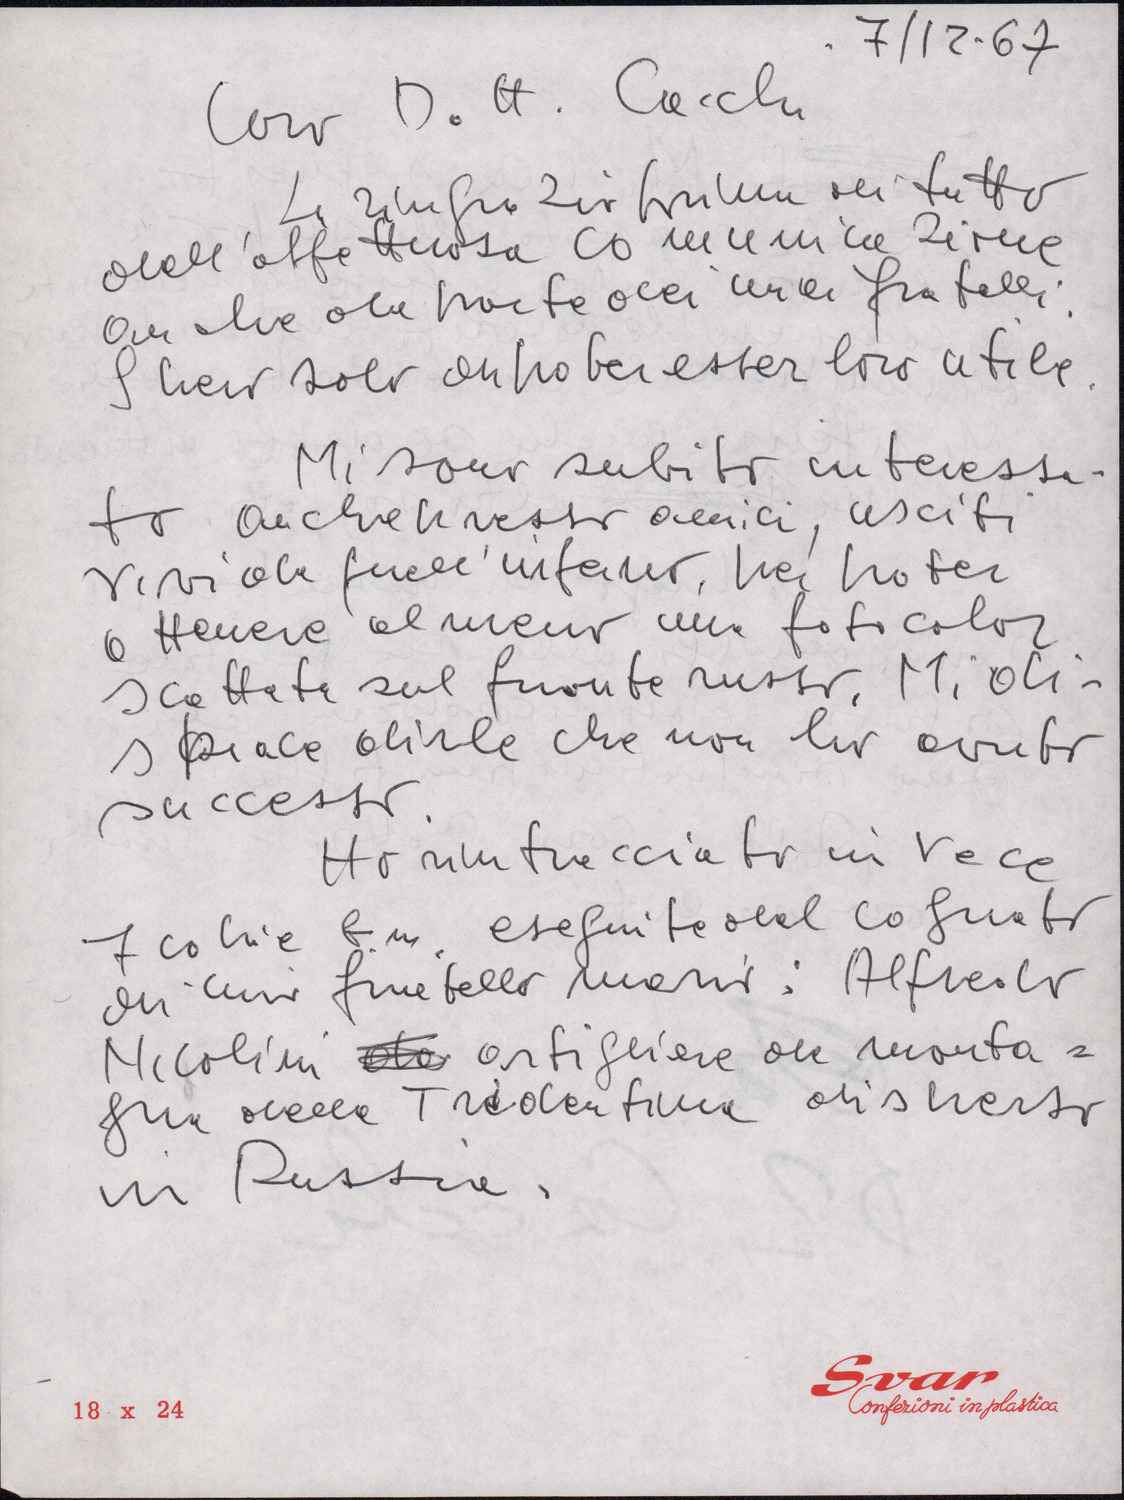 7/12.67
Caro Dott. Cecchi
La ringrazio prima di tutto
dell'affettuosa comunicazione
anche da parte dei miei fratelli.
Spero solo di poter esser loro utile.
Mi sono subito interessa-
to anche presso amici, usciti
vivi da quell'inferno, per poter
ottenere almeno una fotocolor
scattata sul fronte russo. Mi di-
spiace dirle che non ho avuto
successo.
Ho rintracciato invece
7 copie b.n. eseguite dal cognato
di mio fratello Mario: Alfredo
Nicolini artigliere da monta=
gna della Tridentina disperso
in Russia.
18 x 24
Svar
Confezioni in plastica